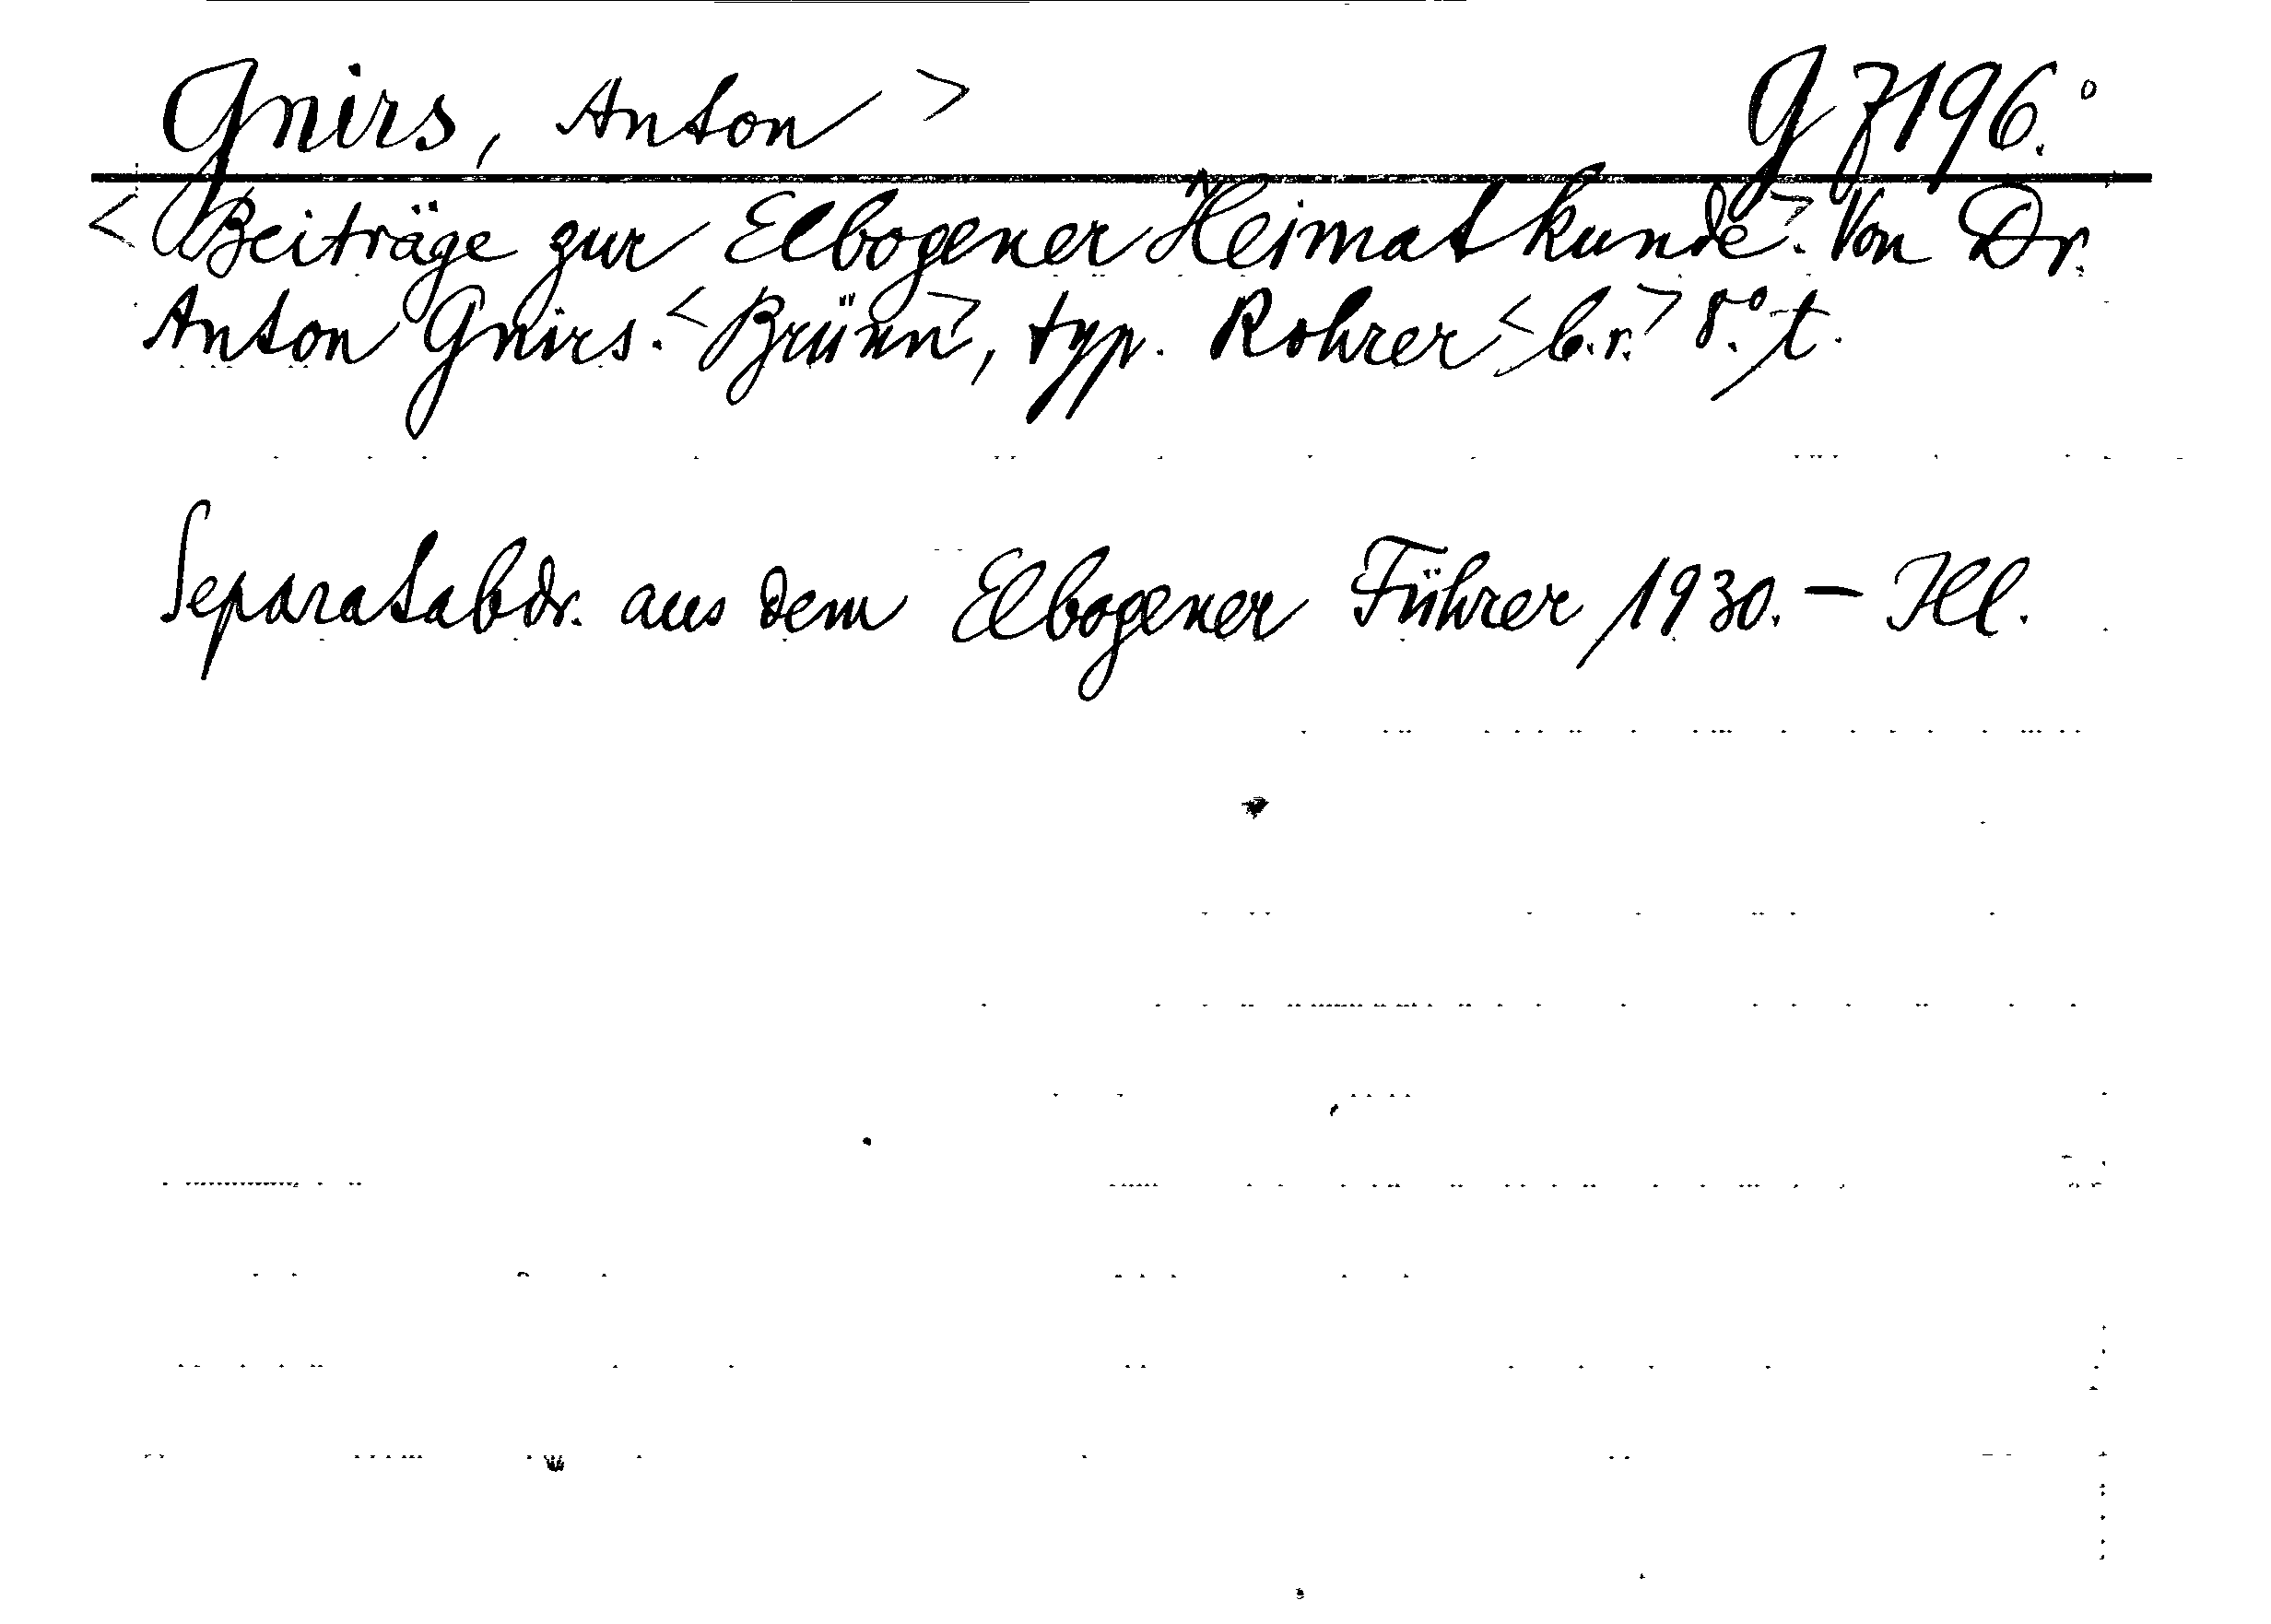 Gnirs, Anton > G 7196.°
< Beiträge zur Elbogener Heimatkunde >. Von Dr.
Anton Gnirs. < Brünn >, typ. Rohrer < b.r. > 8.° t.
Separatabdr. aus dem Elbogener Führer 1930. – Ill.